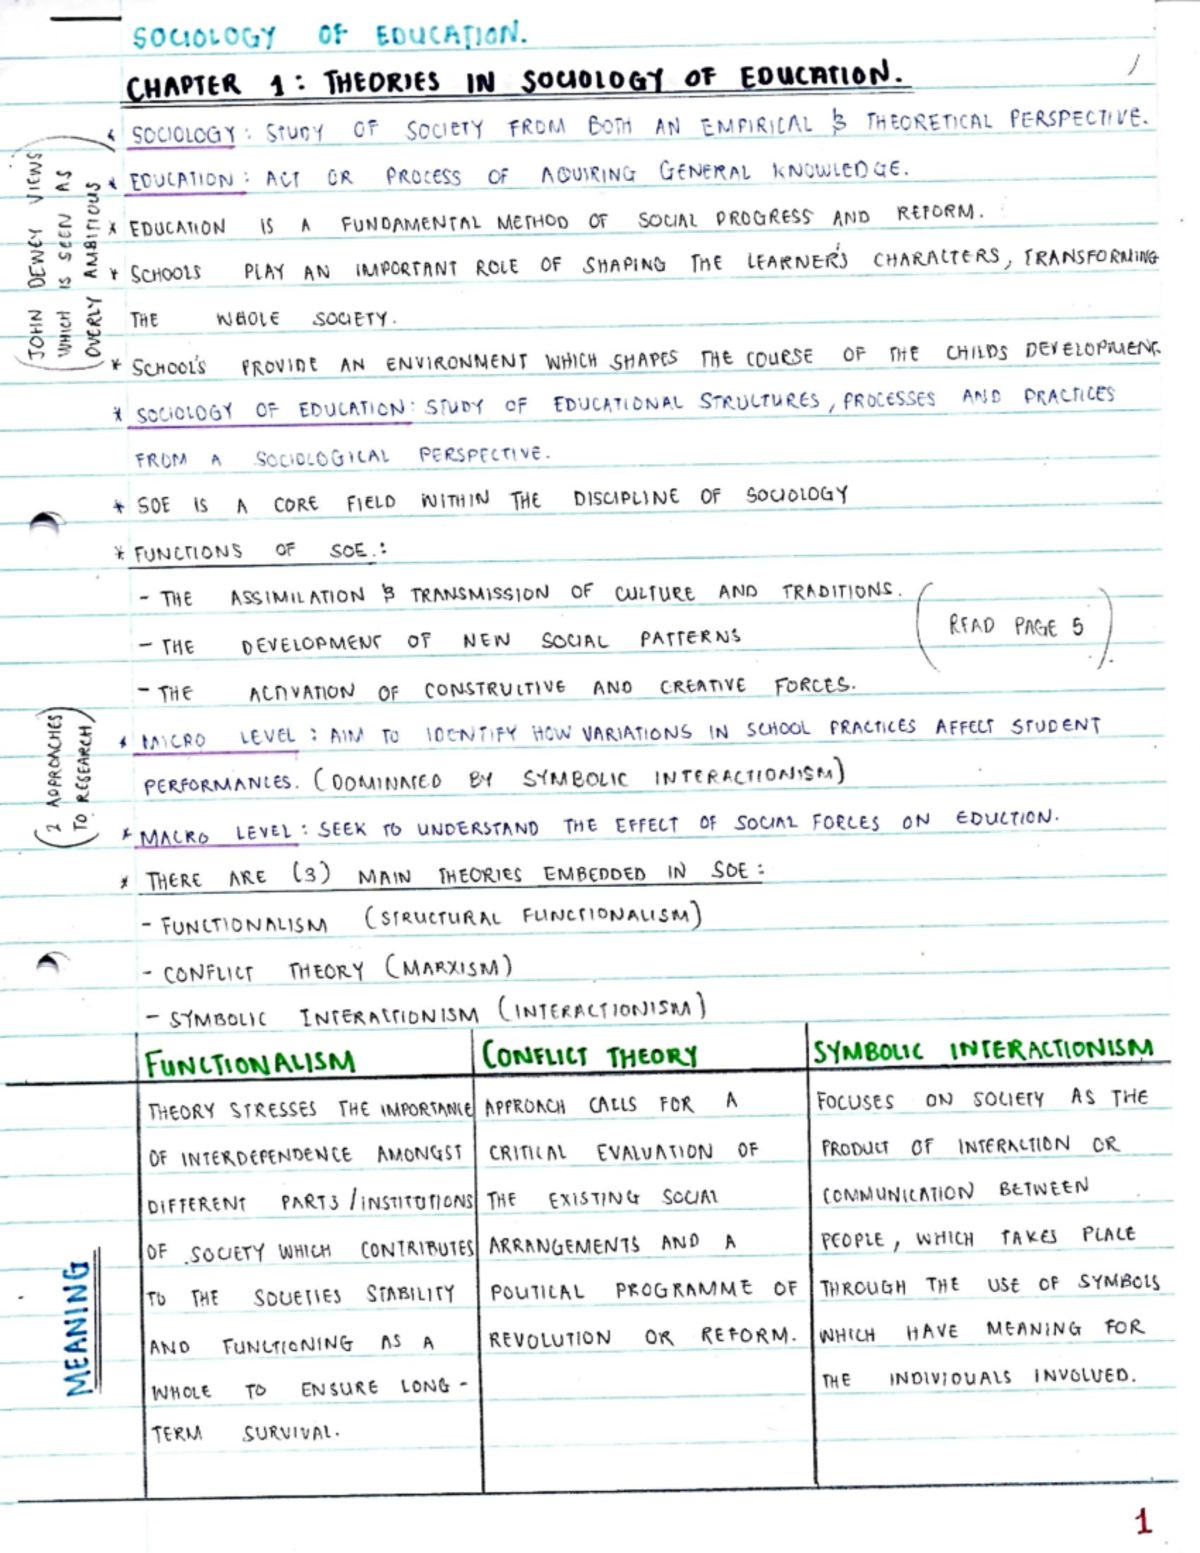 SOCIOLOGY OF EDUCATION.
CHAPTER 1: THEORIES IN SOCIOLOGY OF EDUCATION.
* SOCIOLOGY: STUDY OF SOCIETY FROM BOTH AN EMPIRICAL & THEORETICAL PERSPECTIVE.
* EDUCATION: ACT OR PROCESS OF AQUIRING GENERAL KNOWLEDGE.
* EDUCATION IS A FUNDAMENTAL METHOD OF SOCIAL PROGRESS AND REFORM.
* SCHOOLS PLAY AN IMPORTANT ROLE OF SHAPING THE LEARNER'S CHARACTERS, TRANSFORMING
THE WHOLE SOCIETY.
(JOHN DEWEY VIEWS
WHICH IS SEEN AS
OVERLY AMBITIOUS)
* SCHOOL'S PROVIDE AN ENVIRONMENT WHICH SHAPES THE COURSE OF THE CHILDS DEVELOPMENT.
* SOCIOLOGY OF EDUCATION: STUDY OF EDUCATIONAL STRUCTURES, PROCESSES AND PRACTICES
FROM A SOCIOLOGICAL PERSPECTIVE.
* SOE IS A CORE FIELD WITHIN THE DISCIPLINE OF SOCIOLOGY
* FUNCTIONS OF SOE.:
- THE ASSIMILATION & TRANSMISSION OF CULTURE AND TRADITIONS.
- THE DEVELOPMENT OF NEW SOCIAL PATTERNS
(READ PAGE 5)
- THE ACTIVATION OF CONSTRUCTIVE AND CREATIVE FORCES.
* MICRO LEVEL: AIM TO IDENTIFY HOW VARIATIONS IN SCHOOL PRACTICES AFFECT STUDENT
PERFORMANCES. (DOMINATED BY SYMBOLIC INTERACTIONISM)
(2 APPROACHES
TO RESEARCH)
* MACRO LEVEL: SEEK TO UNDERSTAND THE EFFECT OF SOCIAL FORCES ON EDUCTION.
* THERE ARE (3) MAIN THEORIES EMBEDDED IN SOE:
- FUNCTIONALISM (STRUCTURAL FUNCTIONALISM)
- CONFLICT THEORY (MARXISM)
- SYMBOLIC INTERACTIONISM (INTERACTIONISM)
MEANING
FUNCTIONALISM
THEORY STRESSES THE IMPORTANCE
OF INTERDEPENDENCE AMONGST
DIFFERENT PARTS/INSTITUTIONS
OF SOCIETY WHICH CONTRIBUTES
TO THE SOCIETIES STABILITY
AND FUNCTIONING AS A
WHOLE TO ENSURE LONG-
TERM SURVIVAL.
CONFLICT THEORY
APPROACH CALLS FOR A
CRITICAL EVALUATION OF
THE EXISTING SOCIAL
ARRANGEMENTS AND A
POLITICAL PROGRAMME OF
REVOLUTION OR REFORM.
SYMBOLIC INTERACTIONISM
FOCUSES ON SOCIETY AS THE
PRODUCT OF INTERACTION OR
COMMUNICATION BETWEEN
PEOPLE, WHICH TAKES PLACE
THROUGH THE USE OF SYMBOLS
WHICH HAVE MEANING FOR
THE INDIVIDUALS INVOLVED.
1